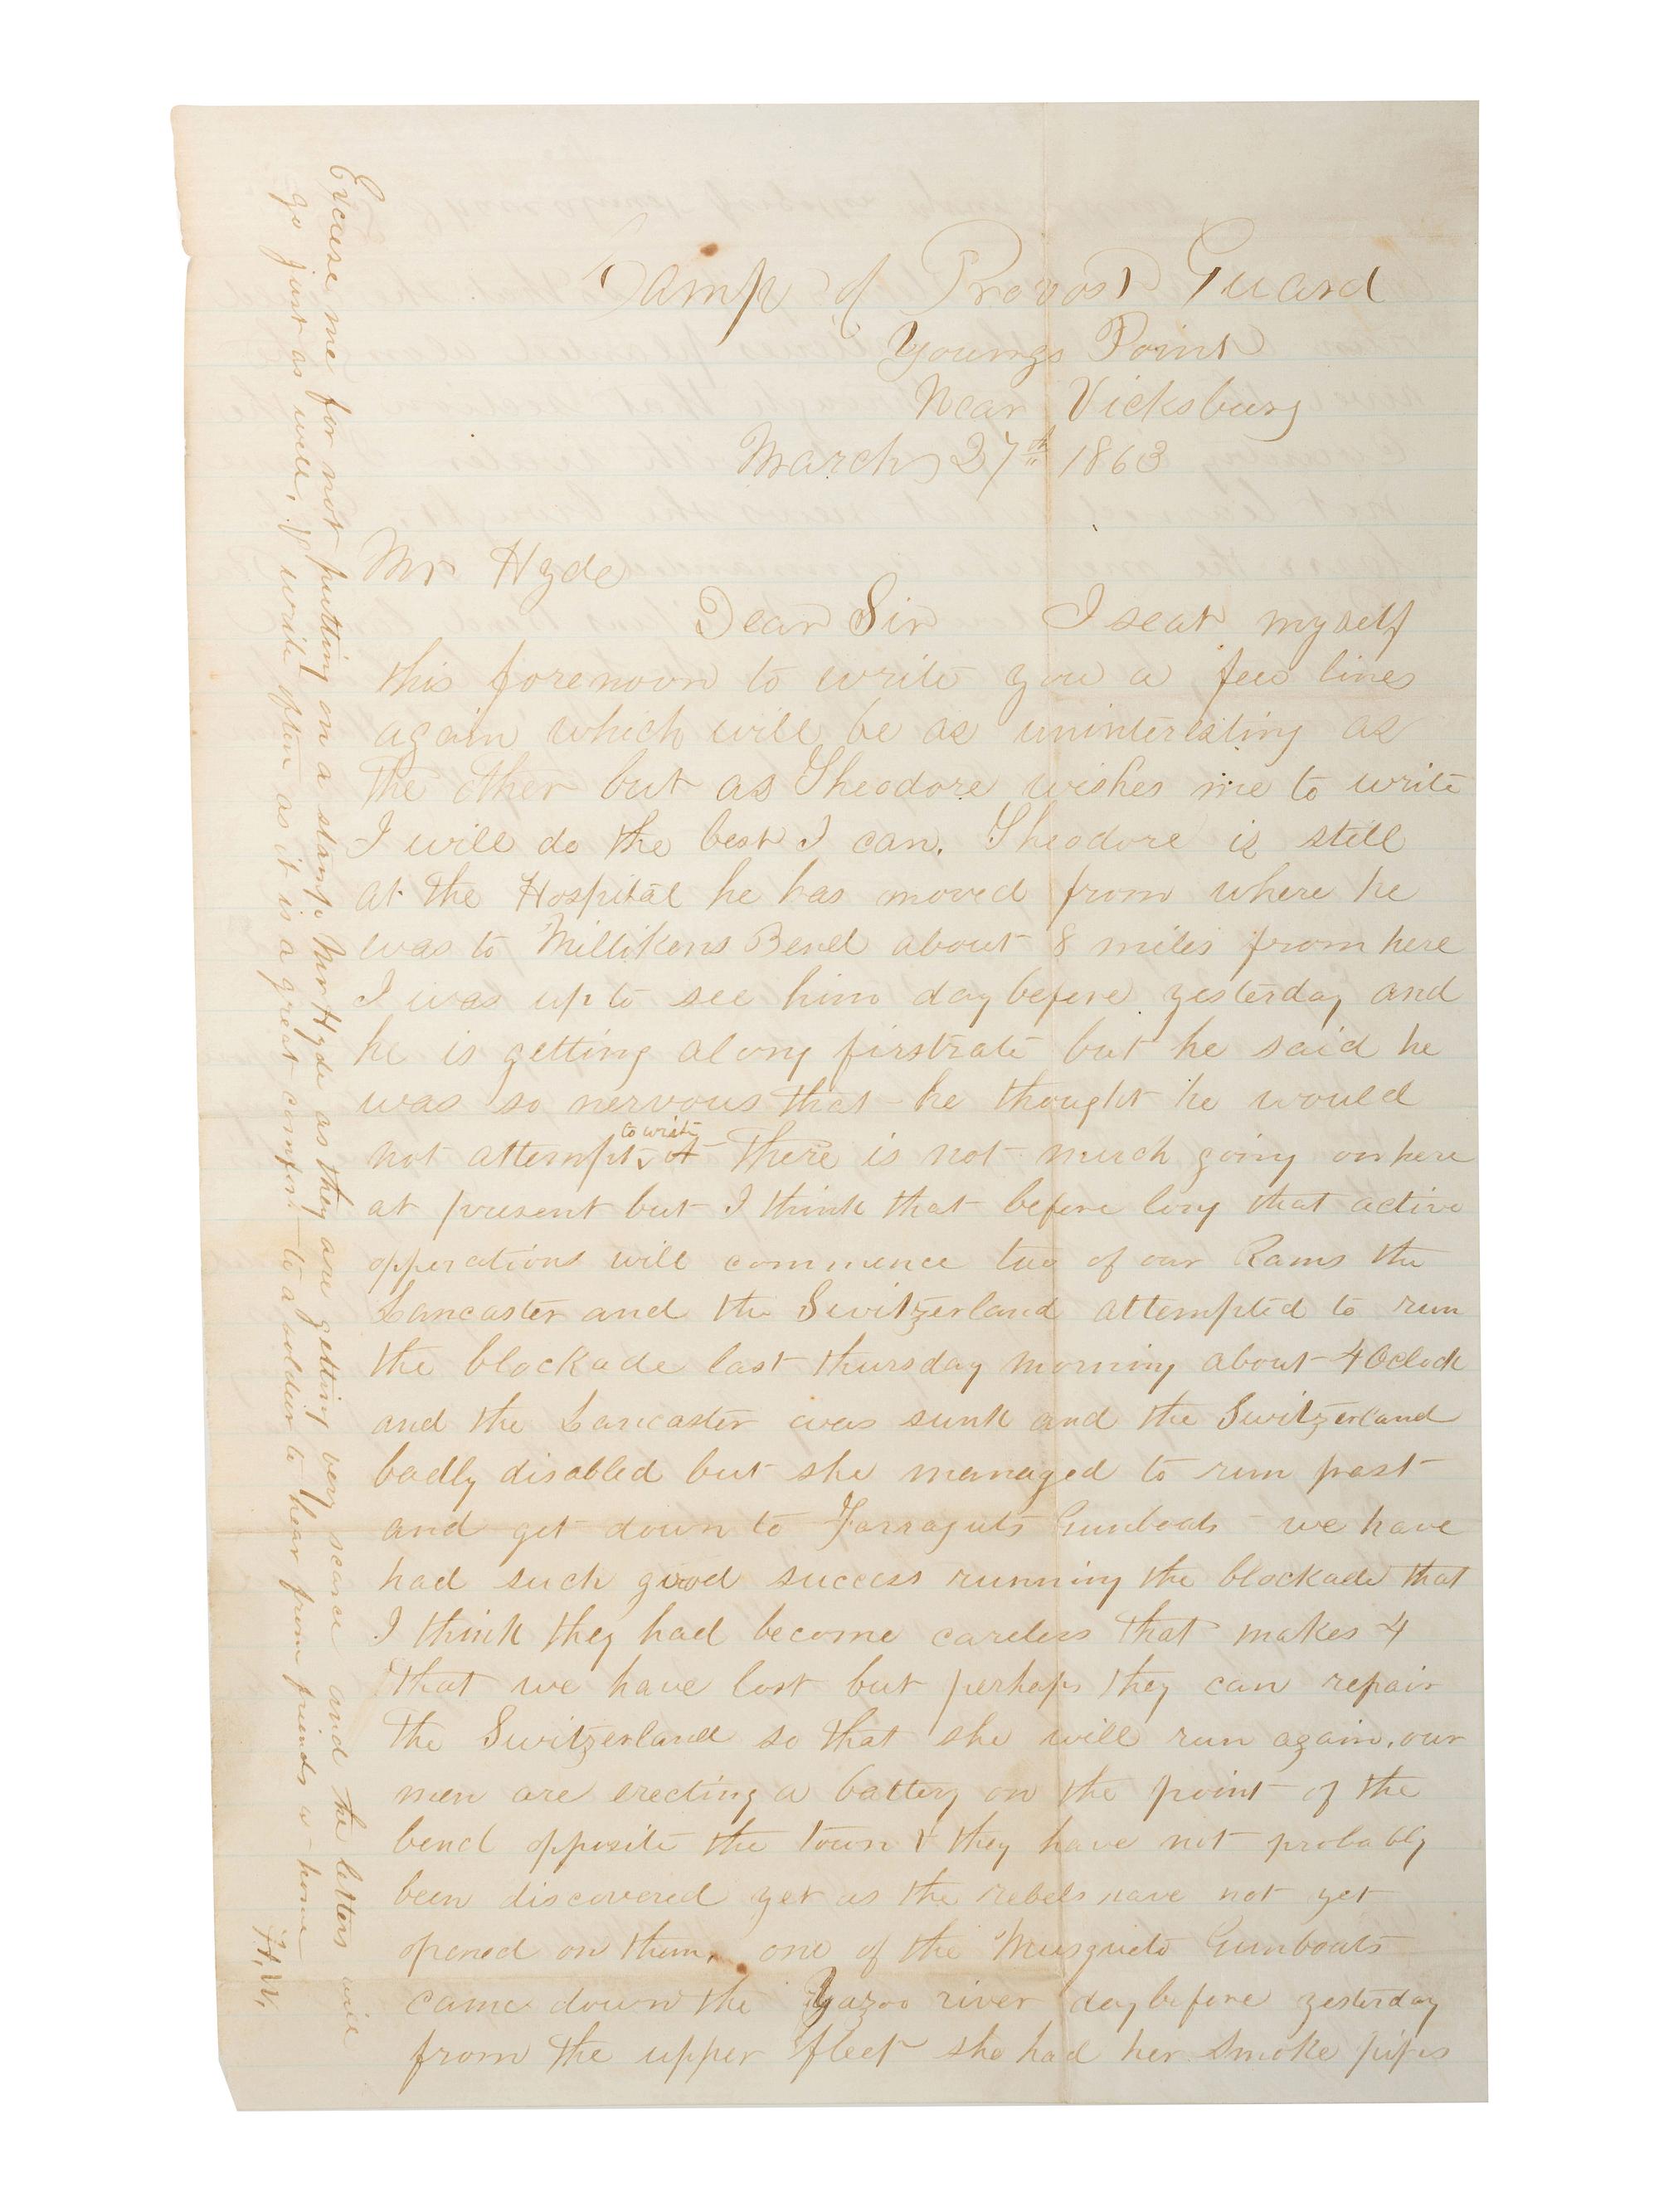 Camp of Provost Guard
Youngs Point
Near Vicksburg
March 27th 1863
Mr Hyde
Dear Sir I seat myself
this forenoon to write you a few lines
again which will be as uninteresting as
the other but as Theodore wishes me to write
I will do the best I can. Theodore is still
at the Hospital he has moved from where he
was to Millikens Bend about 8 miles from here
I was up to see him day before yesterday and
he is getting along firstrate but he said he
was so nervous that he thought he would
not attempt to write it There is not much going on here
at present but I think that before long that active
opperations will commence two of our Rams the
Lancaster and the Switzerland attempted to run
the blockade last thursday morning about 4 Oclock
and the Lancaster was sunk and the Switzerland
badly disabled but she managed to run past
and get down to Farraguts Gunboats we have
had such good success running the blockade that
I think they had become careless that makes 4
that we have lost but perhaps they can repair
the Switzerland so that she will run again. our
men are erecting a battery on the point of the
bend opposite the town & they have not probably
been discovered yet as the rebels have not yet
opened on them. one of the Musquito Gunboats
came down the Yazoo river day before yesterday
from the upper fleet she had her smoke pipes
Excuse me for not putting on a stamp Mr Hyde as they are getting very scarce and the letters will
go just as well. write often as it is a great comfort to a solder to hear from friends a home
H.W.